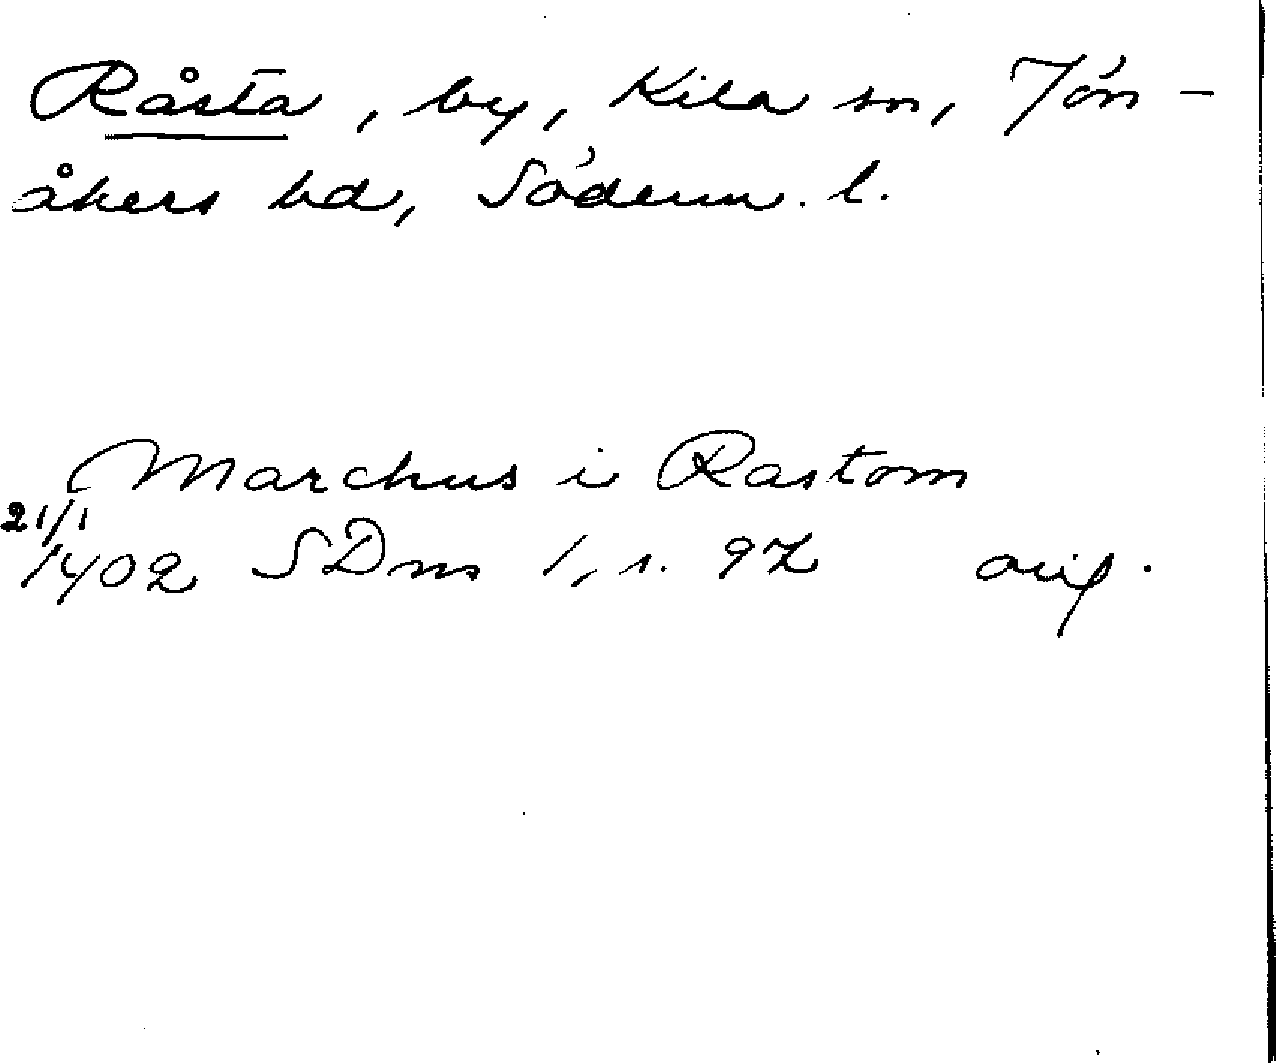 Råsta, by, Kila sn, Jön-
åkers hd, Söderm. l.
Marchus i Rastom
21/1
1402 SDns 1, s. 97 orig.